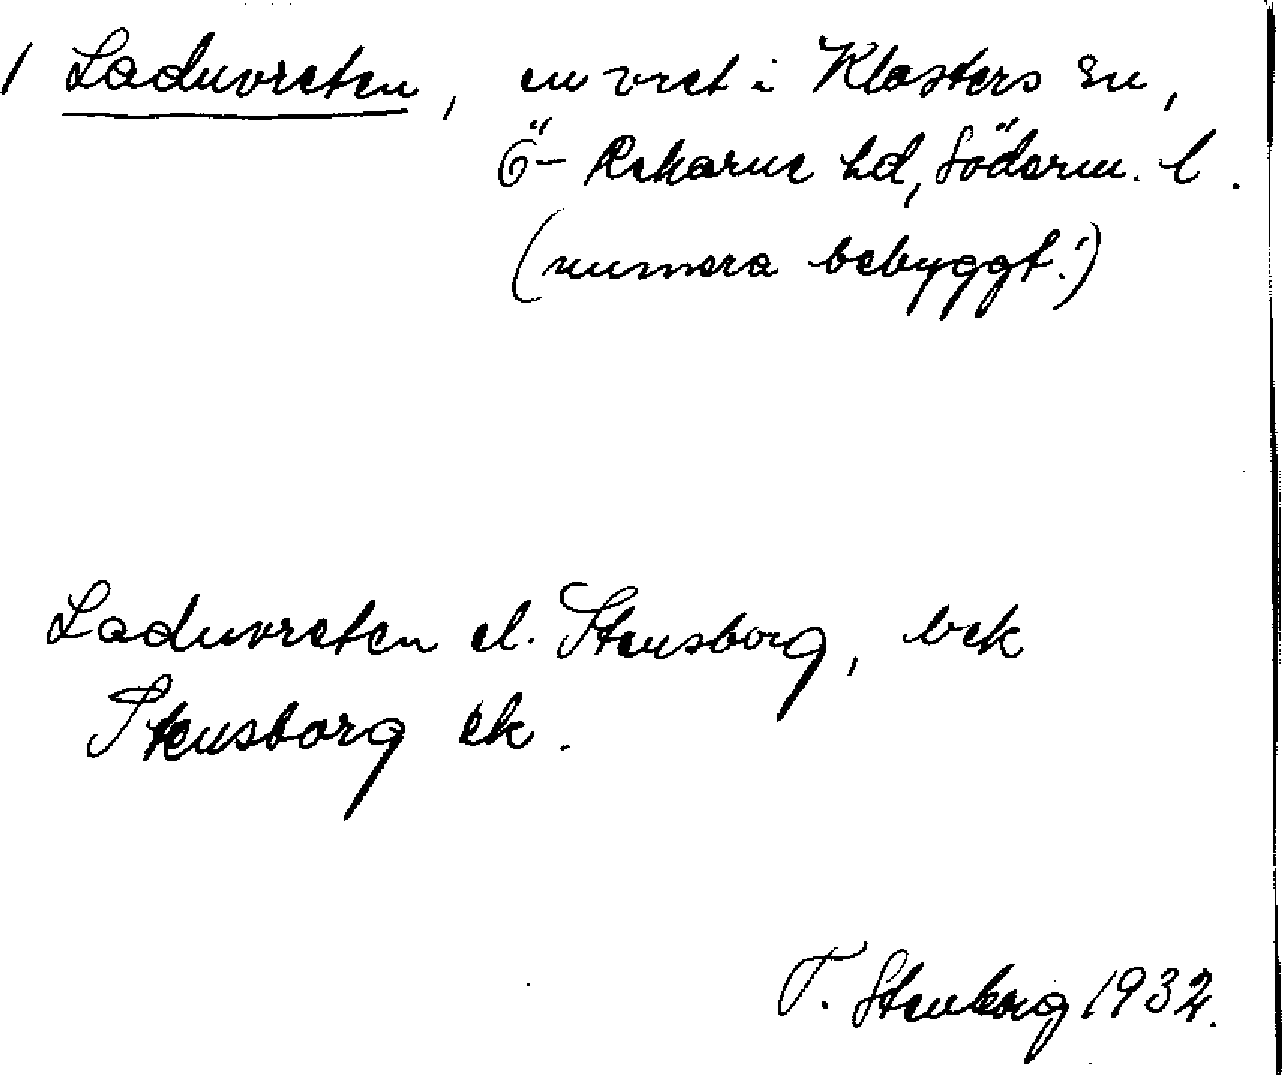 1 Laduvreten, en vret i Klosters sn,
Ö-Rekarne hd, Söderm. l.
(numera bebyggt!)
Laduvreten el. Stensborg, bek
Stensborg ek.
T. Stenborg 1932.